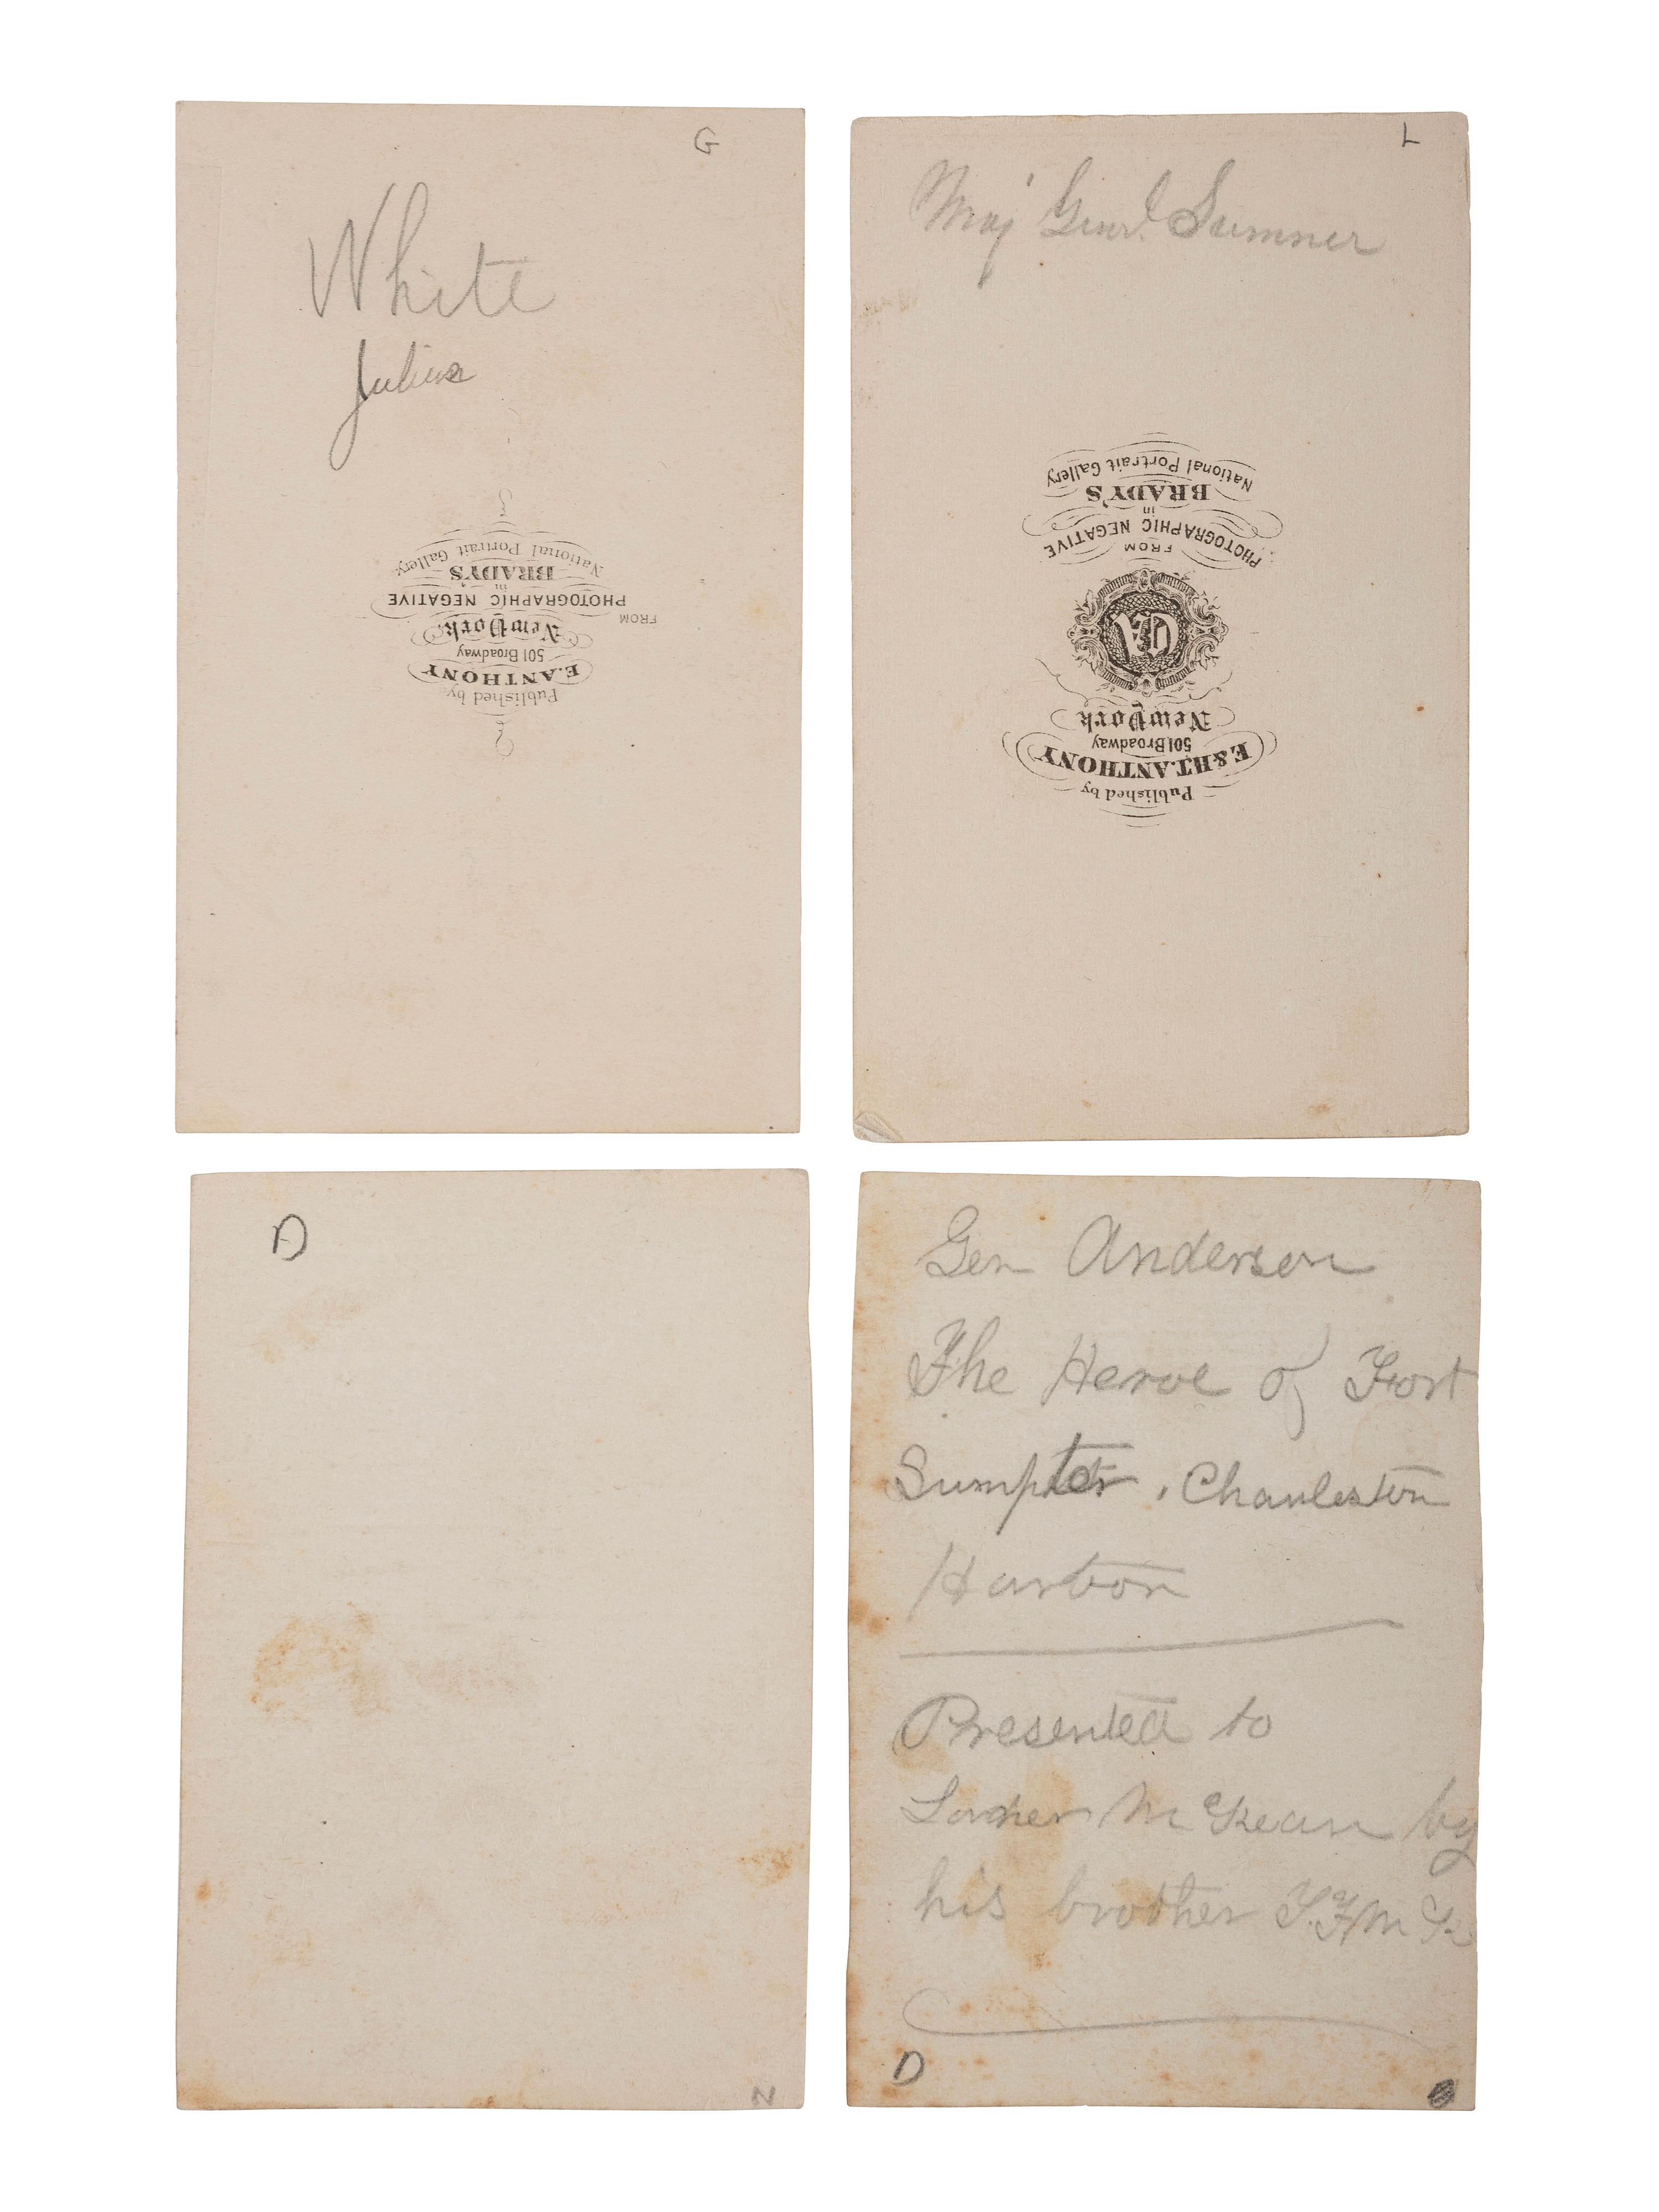 G
White
Julius
Published by
E. ANTHONY
501 Broadway
New York.
FROM
PHOTOGRAPHIC NEGATIVE
in
BRADY'S
National Portrait Gallery.
L
Maj Genrl. Sumner
Published by
E. & H.T. ANTHONY
501 Broadway
New York
FROM
PHOTOGRAPHIC NEGATIVE
in
BRADY'S
National Portrait Gallery
D
N
Gen Anderson
The Heroe of Fort
Sumpter, Charleston
Harbor
Presented to
McKean by
his brother
D